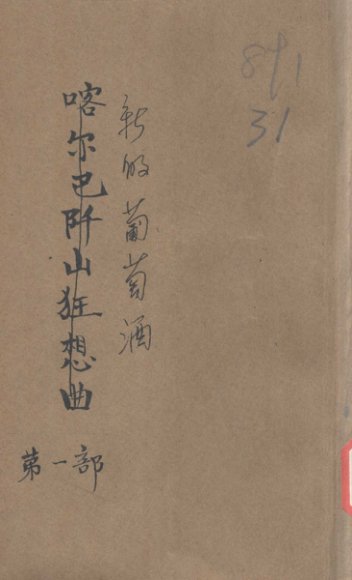 891
31
新的葡萄酒
喀尔巴阡山狂想曲
第一部